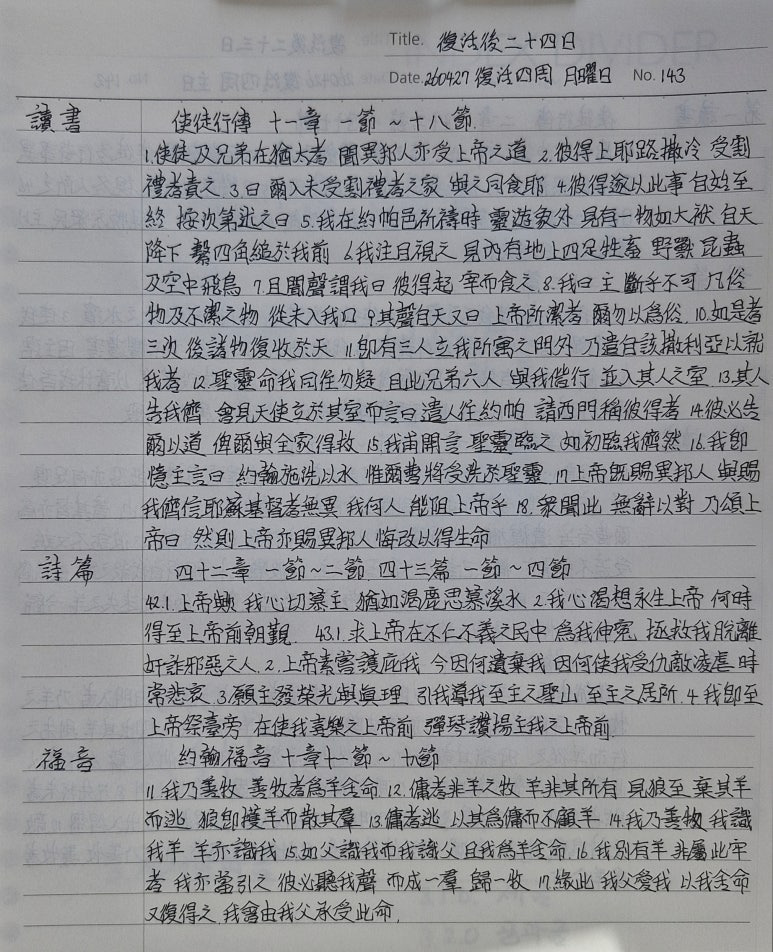 Title. 復活後二十四日
Date. 260427 復活四周 月曜日 No. 143
讀書 使徒行傳 十一章 一節~十八節.
1.使徒及兄弟在猶太者 聞異邦人亦受上帝之道 2.彼得上耶路撒冷 受割
禮者責之 3.曰 爾入未受割禮者之家 與之同食耶 4.彼得遂以此事 自始至
終 按次第述之曰 5.我在約帕邑祈禱時 靈遊象外 見有一物如大袱 自天
降下 繫四角縋於我前 6.我注目視之 見內有地上四足牲畜 野獸 昆蟲
及空中飛鳥 7.且聞聲謂我曰 彼得起 宰而食之 8.我曰 主 斷乎不可 凡俗
物及不潔之物 從未入我口 9.其聲自天又曰 上帝所潔者 爾勿以爲俗. 10.如是者
三次 後諸物復收於天 11.卽有三人立我所寓之門外 乃遣自該撒利亞以就
我者 12.聖靈命我同往勿疑 且此兄弟六人 與我偕行 並入其人之室 13.其人
告我儕 曾見天使立於其室而言曰 遣人往約帕 請西門稱彼得者 14.彼必告
爾以道 俾爾與全家得救 15.我甫開言 聖靈臨之 如初臨我儕然 16.我卽
憶主言曰 約翰施洗以水 惟爾曹將受洗於聖靈 17.上帝旣賜異邦人 與賜
我儕信耶穌基督者無異 我何人 能阻上帝乎 18.衆聞此 無辭以對 乃頌上
帝曰 然則上帝亦賜異邦人 悔改以得生命
詩篇 四十二章 一節~二節. 四十三篇 一節~四節
42.1.上帝歟 我心切慕主 猶如渴鹿思慕溪水 2.我心渴想永生上帝 何時
得至上帝前朝覲. 43.1.求上帝在不仁不義之民中 爲我伸寃 拯救我脫離
奸詐邪惡之人. 2.上帝素嘗護庇我 今因何遺棄我 因何使我受仇敵凌虐 時
常悲哀 3.願主發榮光與眞理 引我導我至主之聖山 至主之居所. 4.我卽至
上帝祭臺旁 在使我喜樂之上帝前 彈琴讚揚主我之上帝前
福音 約翰福音 十章十一節~十八節
11.我乃善牧 善牧者爲羊舍命 12.傭者非羊之牧 羊非其所有 見狼至 棄其羊
而逃 狼卽攫羊而散其羣 13.傭者逃 以其爲傭而不顧羊 14.我乃善牧 我識
我羊 羊亦識我 15.如父識我而我識父 且我爲羊舍命. 16.我別有羊 非屬此牢
者 我亦當引之 彼必聽我聲 而成一羣 歸一牧 17.緣此 我父愛我 以我舍命
又復得之 我嘗由我父承受此命.